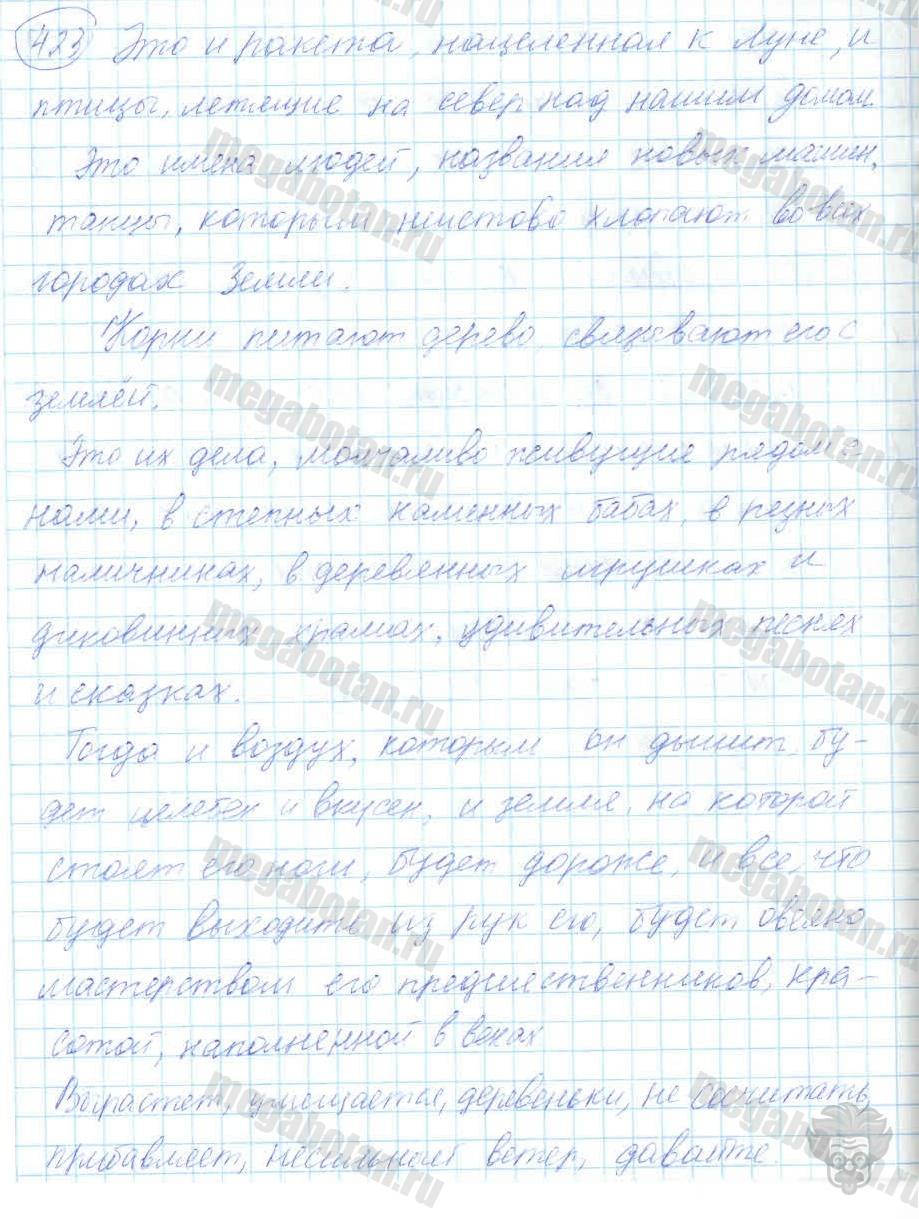 423 Это и ракета, нацеленная к Луне, и
птицы, летящие на север над нашим домом.
Это имена людей, название новых машин,
танцы, которым неистово хлопают во всех
городах Земли.
Корни питают дерево, связывают его с
землёй.
Это их дела, молчаливо живущие рядом с
нами, в степных каменных бабах, в резных
наличниках, в деревянных игрушках и
диковинных храмах, удивительных песнях
и сказках.
Тогда и воздух, которым он дышит, бу-
дет целебен и вкусен, и земля, на которой
стоят его ноги, будет дороже, и все, что
будет выходить из рук его, будет овеяно
мастерством его предшественников, кра-
сотой, наполненной в веках
Вырастет, умещается, деревеньки, не сосчитать,
прибавляет, несильный ветер, давайте.
megabotan.ru
megabotan.ru
megabotan.ru
megabotan.ru
megabotan.ru
megabotan.ru
megabotan.ru
megabotan.ru
megabotan.ru
megabotan.ru